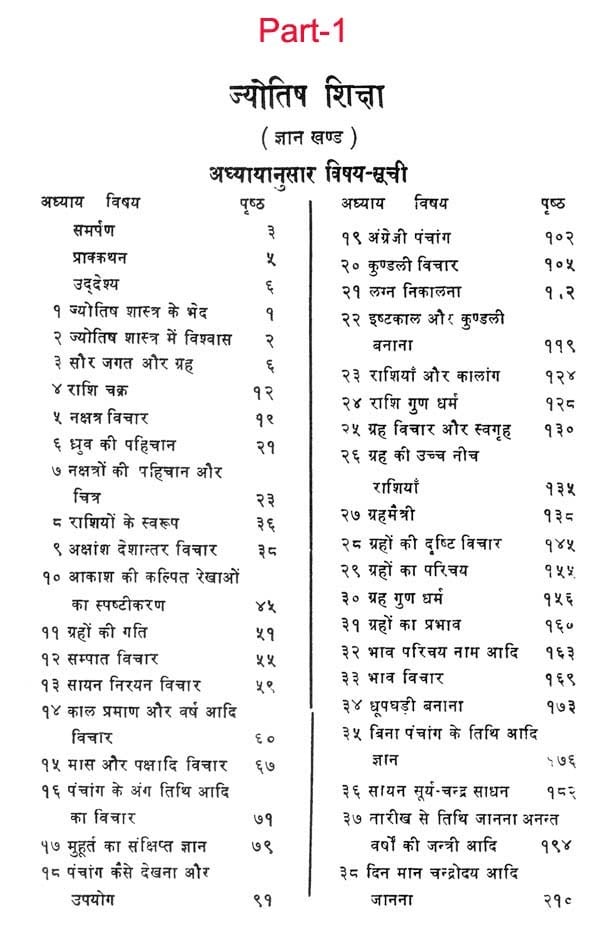 Part-1
ज्योतिष शिक्षा
( ज्ञान खण्ड )
अध्यायानुसार विषय-सूची
अध्याय विषय पृष्ठ
समर्पण ३
प्राक्कथन ५
उद्देश्य ६
१ ज्योतिष शास्त्र के भेद १
२ ज्योतिष शास्त्र में विश्वास २
३ सौर जगत और ग्रह ६
४ राशि चक्र १२
५ नक्षत्र विचार १९
६ ध्रुव की पहिचान २१
७ नक्षत्रों की पहिचान और
चित्र २३
८ राशियों के स्वरूप ३६
९ अक्षांश देशान्तर विचार ३८
१० आकाश की कल्पित रेखाओं
का स्पष्टीकरण ४५
११ ग्रहों की गति ५१
१२ सम्पात विचार ५५
१३ सायन निरयन विचार ५९
१४ काल प्रमाण और वर्ष आदि
विचार ६०
१५ मास और पक्षादि विचार ६७
१६ पंचांग के अंग तिथि आदि
का विचार ७१
१७ मुहूर्त का संक्षिप्त ज्ञान ७९
१८ पंचांग कैसे देखना और
उपयोग ९१
अध्याय विषय पृष्ठ
१९ अंग्रेजी पंचांग १०२
२० कुण्डली विचार १०५
२१ लग्न निकालना
२२ इष्टकाल और कुण्डली
बनाना ११९
२३ राशियाँ और कालांग १२४
२४ राशि गुण धर्म १२८
२५ ग्रह विचार और स्वगृह १३०
२६ ग्रह की उच्च नीच
राशियाँ १३५
२७ ग्रहमैत्री १३८
२८ ग्रहों की दृष्टि विचार १४५
२९ ग्रहों का परिचय १५५
३० ग्रह गुण धर्म १५६
३१ ग्रहों का प्रभाव १६०
३२ भाव परिचय नाम आदि १६३
३३ भाव विचार १६९
३४ धूपघड़ी बनाना १७३
३५ बिना पंचांग के तिथि आदि
ज्ञान १७६
३६ सायन सूर्य-चन्द्र साधन १८२
३७ तारीख से तिथि जानना अनन्त
वर्षों की जन्त्री आदि १९४
३८ दिन मान चन्द्रोदय आदि
जानना २१०